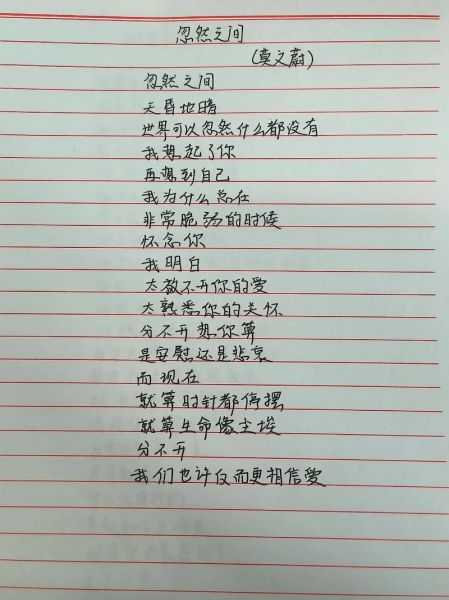 忽然之间
(莫文蔚)
忽然之间
天昏地暗
世界可以忽然什么都没有
我想起了你
再想到自己
我为什么总在
非常脆弱的时候
怀念你
我明白
太放不开你的爱
太熟悉你的关怀
分不开想你算
是安慰还是悲哀
而现在
就算时针都停摆
就算生命像尘埃
分不开
我们也许反而更相信爱